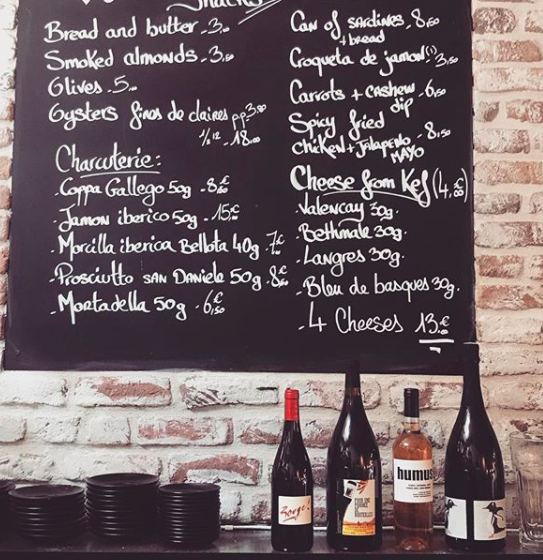 Snacks
Bread and butter - 3,00
Smoked almonds - 3,50
Olives - 5,00
Oysters fines de claires pp 3,80
1/2 12 - 18,00
Charcuterie:
- Coppa Gallego 50g - 8€
- Jamon iberico 50g - 15€
- Morcilla iberica Bellota 40g - 7€
- Prosciutto San Daniele 50g - 8€
- Mortadella 50g - 6,50€
Can of sardines - 8,50
+ bread
Croqueta de jamon (1) - 3,50
Carrots + cashew - 6,50
dip
Spicy fried
chicken + jalapeño - 8,50
mayo
Cheese from Kef (4,00€)
- Valencay 30g.
- Bethmale 30g.
- Langres 30g.
- Bleu de basques 30g.
- 4 Cheeses 13€
humus